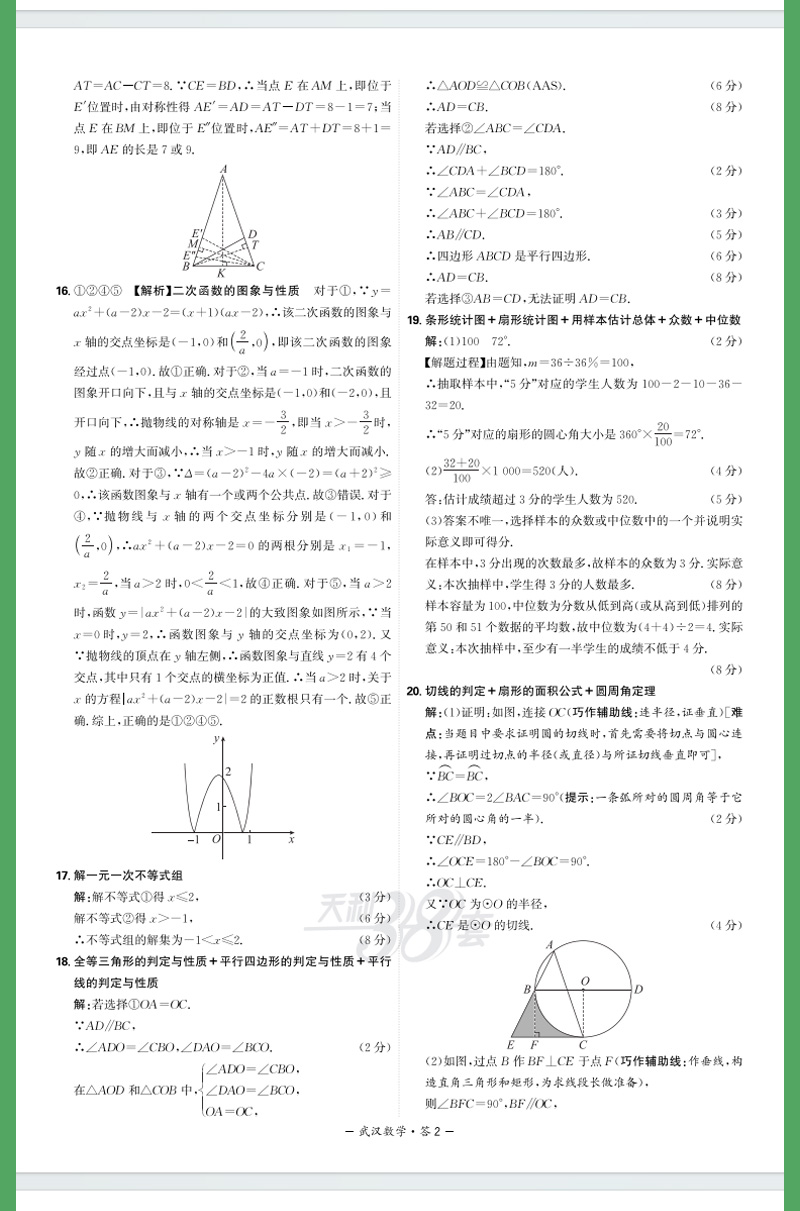 AT=AC-CT=8.∵CE=BD,∴当点 E 在 AM 上,即位于
E′位置时,由对称性得 AE′=AD=AT-DT=8-1=7;当
点 E 在 BM 上,即位于 E″位置时,AE″=AT+DT=8+1=
9,即 AE 的长是 7 或 9.
A
E′ D
M T
E″
B K C
16. ①②④⑤ 【解析】二次函数的图象与性质 对于①,∵y=
ax²+(a-2)x-2=(x+1)(ax-2),∴该二次函数的图象与
x 轴的交点坐标是(-1,0)和(2/a,0),即该二次函数的图象
经过点(-1,0).故①正确.对于②,当 a=-1 时,二次函数的
图象开口向下,且与 x 轴的交点坐标是(-1,0)和(-2,0),且
开口向下,∴抛物线的对称轴是 x=-3/2,即当 x>-3/2时,
y 随 x 的增大而减小,∴当 x>-1 时,y 随 x 的增大而减小.
故②正确.对于③,∵Δ=(a-2)²-4a×(-2)=(a+2)²≥
0,∴该函数图象与 x 轴有一个或两个公共点.故③错误.对于
④,∵抛物线与 x 轴的两个交点坐标分别是(-1,0)和
(2/a,0),∴ax²+(a-2)x-2=0 的两根分别是 x₁=-1,
x₂=2/a,当 a>2 时,0<2/a<1,故④正确.对于⑤,当 a>2
时,函数 y=|ax²+(a-2)x-2|的大致图象如图所示,∵当
x=0 时,y=2,∴函数图象与 y 轴的交点坐标为(0,2).又
∵抛物线的顶点在 y 轴左侧,∴函数图象与直线 y=2 有 4 个
交点,其中只有 1 个交点的横坐标为正值.∴当 a>2 时,关于
x 的方程|ax²+(a-2)x-2|=2 的正数根只有一个.故⑤正
确.综上,正确的是①②④⑤.
y
2
1
-1 O 1 x
17. 解一元一次不等式组
解:解不等式①得 x≤2, (3 分)
解不等式②得 x>-1, (6 分)
∴不等式组的解集为-1<x≤2. (8 分)
18. 全等三角形的判定与性质+平行四边形的判定与性质+平行
线的判定与性质
解:若选择①OA=OC.
∵AD∥BC,
∴∠ADO=∠CBO,∠DAO=∠BCO. (2 分)
∠ADO=∠CBO,
在△AOD 和△COB 中,{∠DAO=∠BCO,
OA=OC,
∴△AOD≌△COB(AAS). (6 分)
∴AD=CB. (8 分)
若选择②∠ABC=∠CDA.
∵AD∥BC,
∴∠CDA+∠BCD=180°. (2 分)
∵∠ABC=∠CDA,
∴∠ABC+∠BCD=180°. (3 分)
∴AB∥CD. (5 分)
∴四边形 ABCD 是平行四边形. (6 分)
∴AD=CB. (8 分)
若选择③AB=CD,无法证明 AD=CB.
19. 条形统计图+扇形统计图+用样本估计总体+众数+中位数
解:(1)100 72°. (2 分)
【解题过程】由题知,m=36÷36%=100,
∴抽取样本中,“5 分”对应的学生人数为 100-2-10-36-
32=20.
∴“5 分”对应的扇形的圆心角大小是 360°×20/100=72°.
(2)32+20/100×1 000=520(人). (4 分)
答:估计成绩超过 3 分的学生人数为 520. (5 分)
(3)答案不唯一,选择样本的众数或中位数中的一个并说明实
际意义即可得分.
在样本中,3 分出现的次数最多,故样本的众数为 3 分.实际意
义:本次抽样中,学生得 3 分的人数最多. (8 分)
样本容量为 100,中位数为分数从低到高(或从高到低)排列的
第 50 和 51 个数据的平均数,故中位数为(4+4)÷2=4.实际
意义:本次抽样中,至少有一半学生的成绩不低于 4 分.
(8 分)
20. 切线的判定+扇形的面积公式+圆周角定理
解:(1)证明:如图,连接 OC(巧作辅助线:连半径,证垂直)[难
点:当题目中要求证明圆的切线时,首先需要将切点与圆心连
接,再证明过切点的半径(或直径)与所证切线垂直即可],
∵B͡C=B͡C,
∴∠BOC=2∠BAC=90°(提示:一条弧所对的圆周角等于它
所对的圆心角的一半). (2 分)
∵CE∥BD,
∴∠OCE=180°-∠BOC=90°.
∴OC⊥CE.
又∵OC 为⊙O 的半径,
∴CE 是⊙O 的切线. (4 分)
A
B O D
E F C
(2)如图,过点 B 作 BF⊥CE 于点 F(巧作辅助线:作垂线,构
造直角三角形和矩形,为求线段长做准备),
则∠BFC=90°,BF∥OC,
天利38套
— 武汉数学·答 2 —